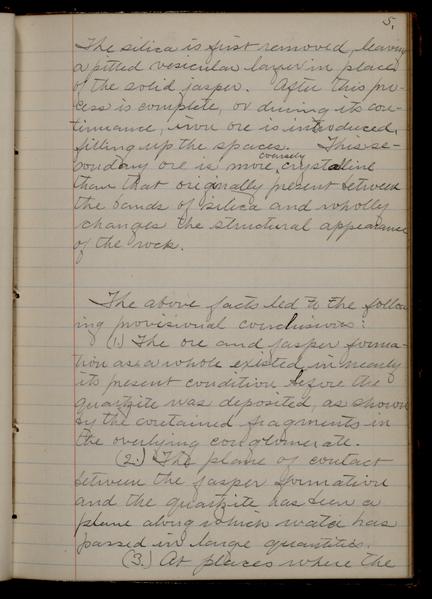 5.
The silica is first removed, leaving
a pitted vesicular layer in place
of the solid jasper. After this pro-
cess is complete, or during its con-
tinuance, iron ore is introduced,
filling up the spaces. This se-
condary ore is more coarsely crystalline
than that originally present between
the bands of silica and wholly
changes the structural appearance
of the rock.
The above facts led to the follow-
ing provisional conclusions:
(1.) The ore and jasper forma-
tion as a whole existed in nearly
its present condition before the
quartzite was deposited, as shown
by the contained fragments in
the overlying conglomerate.
(2.) The plane of contact
between the jasper formation
and the quartzite has been a
plane along which water has
passed in large quantities.
(3.) At places where the